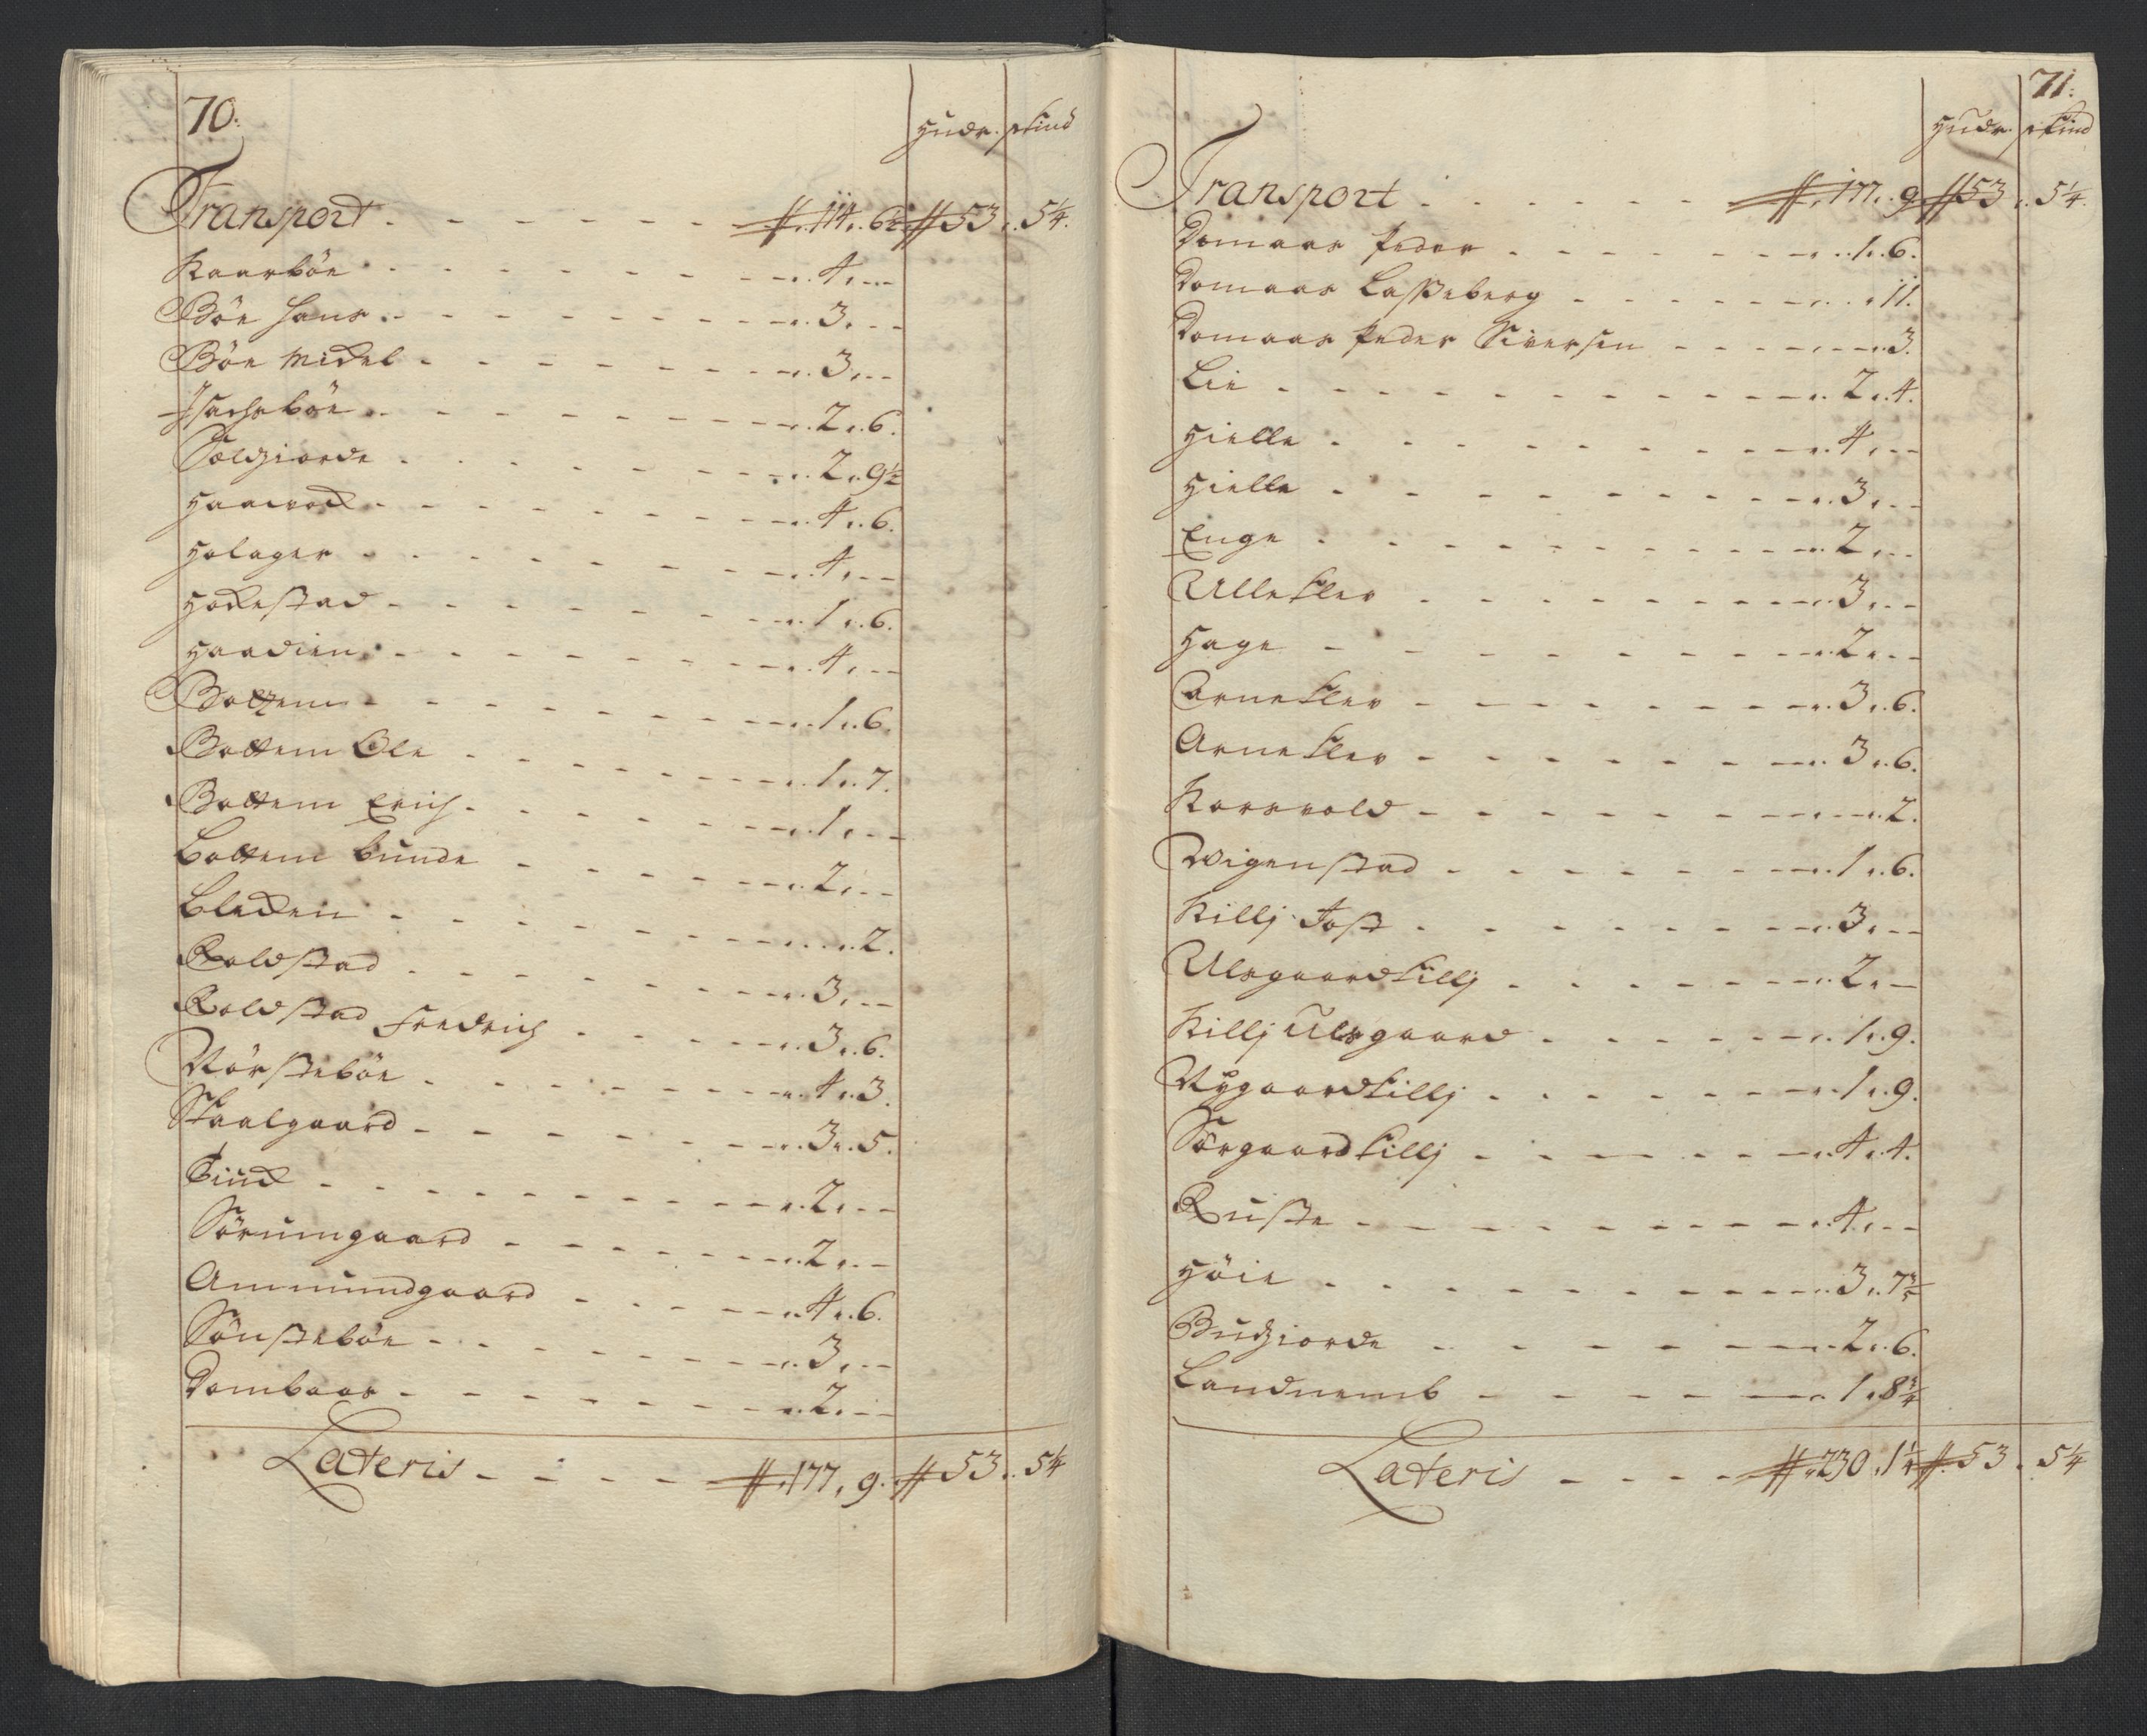 70:
Hudr. skind
Transport . - - - - - ##. 114,. 6½ ## 53 ,. 5¼.
Kaarböe . - - - - - - - - ,. 4,. --
Böe Hans . - - - - - - - ,. 3,. --
Böe Mickel - - - - - - - ,. 3,. --
Isachsböe . - - - - - - - ,. 2,. 6.
Sælgiorde . - - - - - - ,. 2,. 9½
Haarvod - - - - - - - ,. 4,. 6.
Holager - - - - - - - ,. 4,. --
Hockestad - - - - - - - ,. 1,. 6.
Haardien - - - - - - - ,. 4,. --
Bottem - - - - - - - ,. 1,. 6.
Bottem Ole - - - - - - ,. 1,. 7.
Bottem Erich - - - - - - ,. 1,. --
Bottem bunde - - - - - - ,. 2,. --
Blecken - - - - - - - ,. ,. 2.
Roldstad - - - - - - - ,. 3,. --
Roldstad Fredrich - - - - ,. 3,. 6.
Nörsteböe . - - - - - - ,. 4,. 3.
Skaalgaard - - - - - - ,. 3,. 5.
- - - - - - - ,. 2,. --
Sörumgaard - - - - - - ,. 2,. --
Ammundgaard - - - - - ,. 4,. 6.
Sönsteböe - - - - - - ,. 3,. --
Dombaas - - - - - - - ,. 2,. --
Lateris - - - - ##. 177, 9. ## 53,. 5¼
71:
Hudr. skind
Transport . - - - - - ##. 177,. 9 ## 53 ,. 5¼.
Domaas Peder . - - - - - ,. 1,. 6.
Domaas Lasseberg - - - - - ,. ,. 11.
Domaas Peder Siversen - - - - ,. 3.
Lie - - - - - - - - - ,. 2,. 4.
Hielle - - - - - - - - ,. 4,. --
Hielle - - - - - - - - ,. 3,. --
Enge - - - - - - - - ,. 2,. --
Ullekler - - - - - - - ,. 3,. --
Hage - - - - - - - - ,. 2,. --
Arnekler - - - - - - - ,. 3,. 6.
Arnekler - - - - - - - ,. 3,. 6.
Korsvold - - - - - - - ,. 2.
Wigenstad - - - - - - ,. 1,. 6.
Killj Jost - - - - - - ,. 3,. --
Ulsgaardkillj - - - - - - ,. 2,. --
Killj Ulsgaard - - - - - ,. 1,. 9.
Nygaardkillj - - - - - - ,. 1,. 9.
Sörgaardkillj - - - - - - ,. 4,. 4.
Ruste - - - - - - - - ,. 4,. --
Höie - - - - - - - - ,. 3,. 7¾
Budgiorde - - - - - - ,. 2,. 6.
Landnemb - - - - - - ,. 1,. 8¾
Lateris - - - - ##. 230 ,. 1¼ ##. 53 ,. 5¼